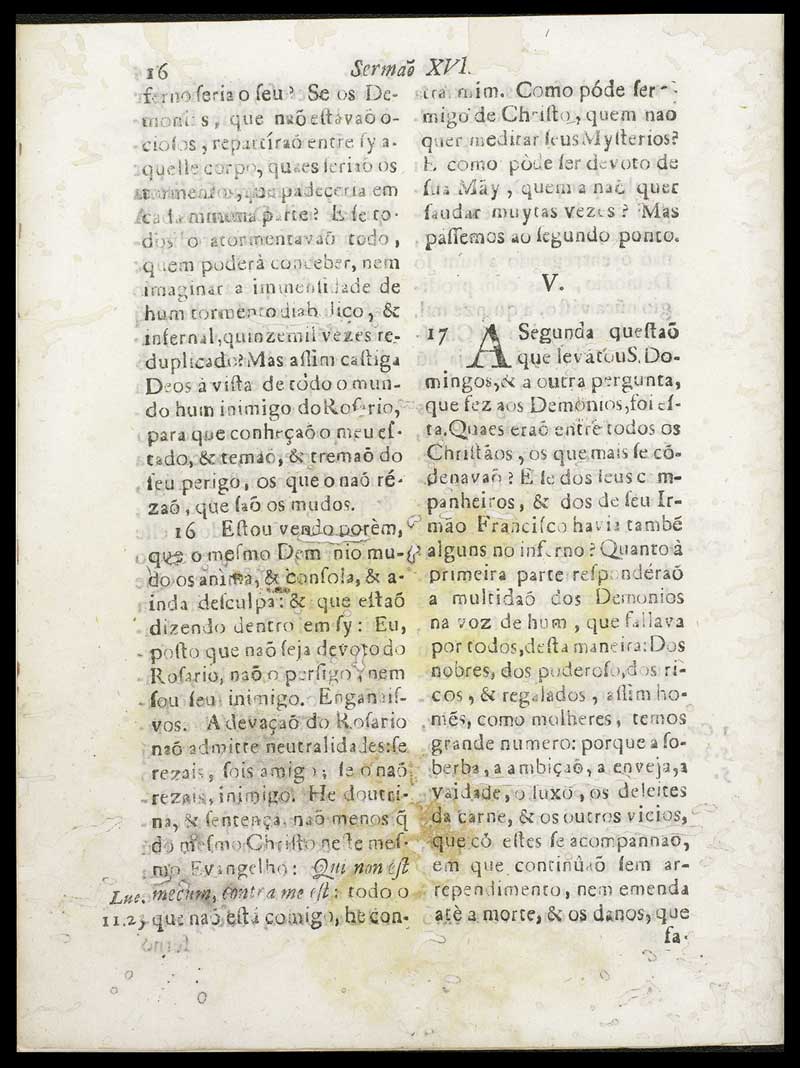 16 Sermaõ XVI.
ferno ſeria o ſeu? Se os De-
monios, que naõ eſtávaõ o-
cioſos, repartíraõ entre ſy a-
quelle corpo, quaes ſeriaõ os
tormentos, que padeceria em
cada minima parte? E ſe to-
dos o atormentavaõ todo,
quem poderà conceber, nem
imaginar a immenſidade de
hum tormento diabolico, &
infernal, quinze mil vezes re-
duplicado? Mas aſſim caſtiga
Deos à viſta de todo o mun-
do hum inimigo do Roſario,
para que conheçaõ o meu eſ-
tado, & temaõ, & tremaõ do
ſeu perigo, os que o naõ ré-
zaõ, que ſaõ os mudos.
16 Eſtou vendo porèm,
que o meſmo Demonio mu-
do os anima, & conſola, & a-
inda deſculpa: & que eſtaõ
dizendo dentro em ſy: Eu,
poſto que naõ ſeja devoto do
Roſario, naõ o perſigo, nem
ſou ſeu inimigo. Enganaiſ-
vos. A devaçaõ do Roſario
naõ admitte neutralidades: ſe
rezais, ſois amigo; ſe o naõ
rezais, inimigo. He doutri-
na, & ſentença naõ menos q̃
do meſmo Chriſto neſte meſ-
mo Evangelho: Qui non eſt
Luc. mecum, contra me eſt: todo o
11.23 que naõ eſtá comigo, he con-
tra mim. Como póde ſer a-
migo de Chriſto, quem naõ
quer meditar ſeus Myſterios?
E como pòde ſer devoto de
ſua Mãy, quem a naõ quer
ſaudar muytas vezes? Mas
paſſemos ao ſegundo ponto.
V.
17 A Segunda queſtaõ
que levãtou S. Do-
mingos, & a outra pergunta,
que fez aos Demonios, foi eſ-
ta. Quaes eraõ entre todos os
Chriſtãos, os que mais ſe cõ-
denavaõ? E ſe dos ſeus com-
panheiros, & dos de ſeu Ir-
mão Franciſco havia tambẽ
alguns no inferno? Quanto à
primeira parte reſpondéraõ
a multidaõ dos Demonios
na voz de hum, que fallava
por todos, deſta maneira: Dos
nobres, dos poderoſo, dos ri-
cos, & regalados, aſſim ho-
mẽs, como molheres, temos
grande numero: porque a ſo-
berba, a ambiçaõ, a enveja, a
vaidade, o luxo, os deleites
da carne, & os outros vicios,
que cõ eſtes ſe acompanhaõ,
em que continûaõ ſem ar-
rependimento, nem emenda
atè a morte, & os danos, que
fa-